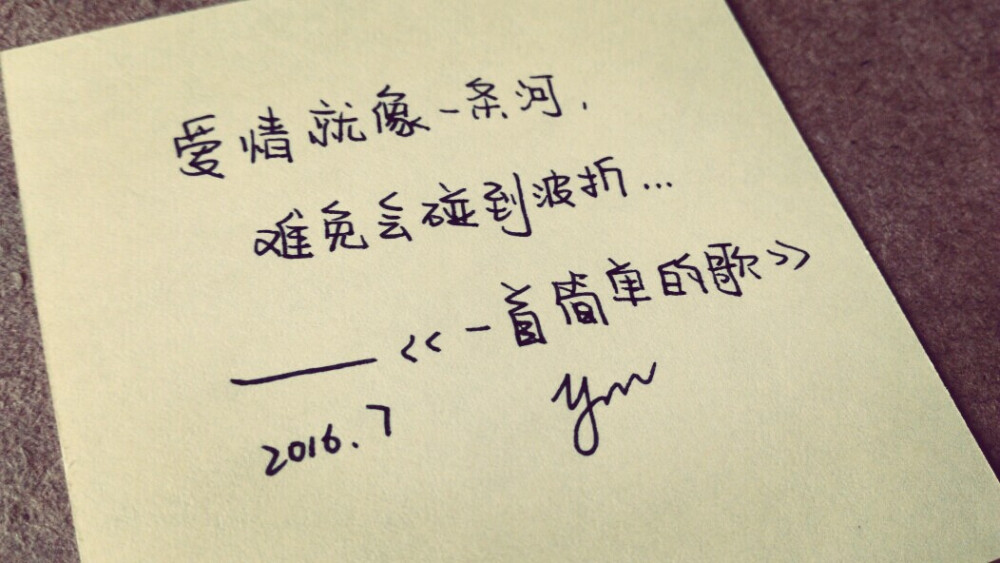 爱情就像一条河，
难免会碰到波折...
——<<一首简单的歌>>
2016.7 ym